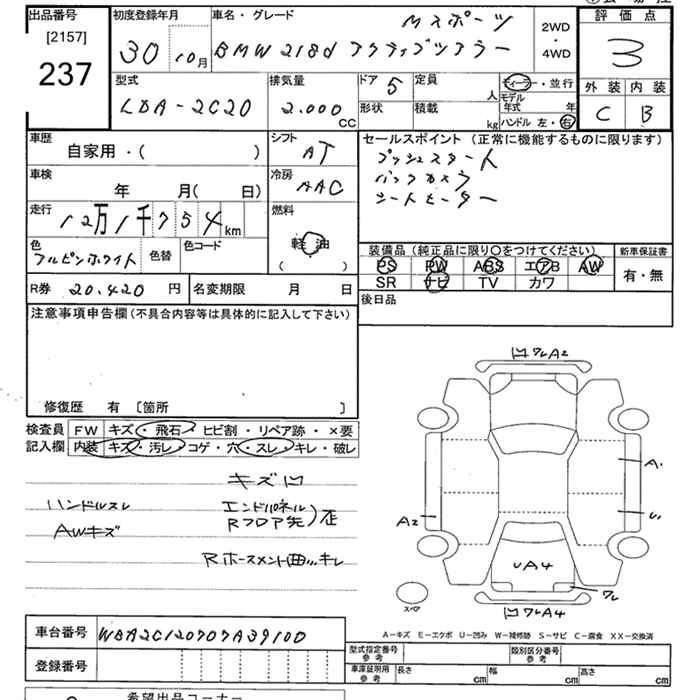 出品番号
[2157]
237
初度登録年月
30 10月
車名・グレード
Mスポーツ
BMW 218d アクティブツアラー
2WD
・
4WD
評価点
3
外装 内装
C B
型式
LDA-2C20
排気量
2.000
CC
ドア 5
定員
人
形状
積載
kg
ディーラー・並行
モデル
年式 年
ハンドル 左・右
車歴
自家用・( )
シフト
AT
車検
年 月( 日)
冷房
AAC
走行
12万1千754km
燃料
軽油
( )
色
アルピンホワイト
色替
色コード
R券 20.420 円
名変期限 月 日
セールスポイント (正常に機能するものに限ります)
プッシュスタート
バックカメラ
シートヒーター
装備品 (純正品に限り○をつけてください)
新車保証書
PS PW ABS エアB AW
SR ナビ TV カワ
有・無
後日品
注意事項申告欄(不具合内容等は具体的に記入して下さい)
修復歴 有 〔箇所 〕
検査員
記入欄
FW キズ・飛石・ヒビ割・リペア跡・×要
内装 キズ・汚レ・コゲ・穴・スレ・キレ・破レ
キズ凹
ハンドルスレ
AWキズ
エンドパネル
Rフロア先)歪
Rホースメント曲..キレ
凹ワレA2
A1
A2
U1
UA4
ワレ
スペア
凹ワレA4
A-キズ E-エクボ U-凹み W-補修跡 S-サビ C-腐食 XX-交換済
車台番号 WBA2C120707A39100
登録番号
型式指定番号
参考
類別区分番号
参考
車庫証明用
参考
長さ cm
幅 cm
高さ cm
希望出品コーナー